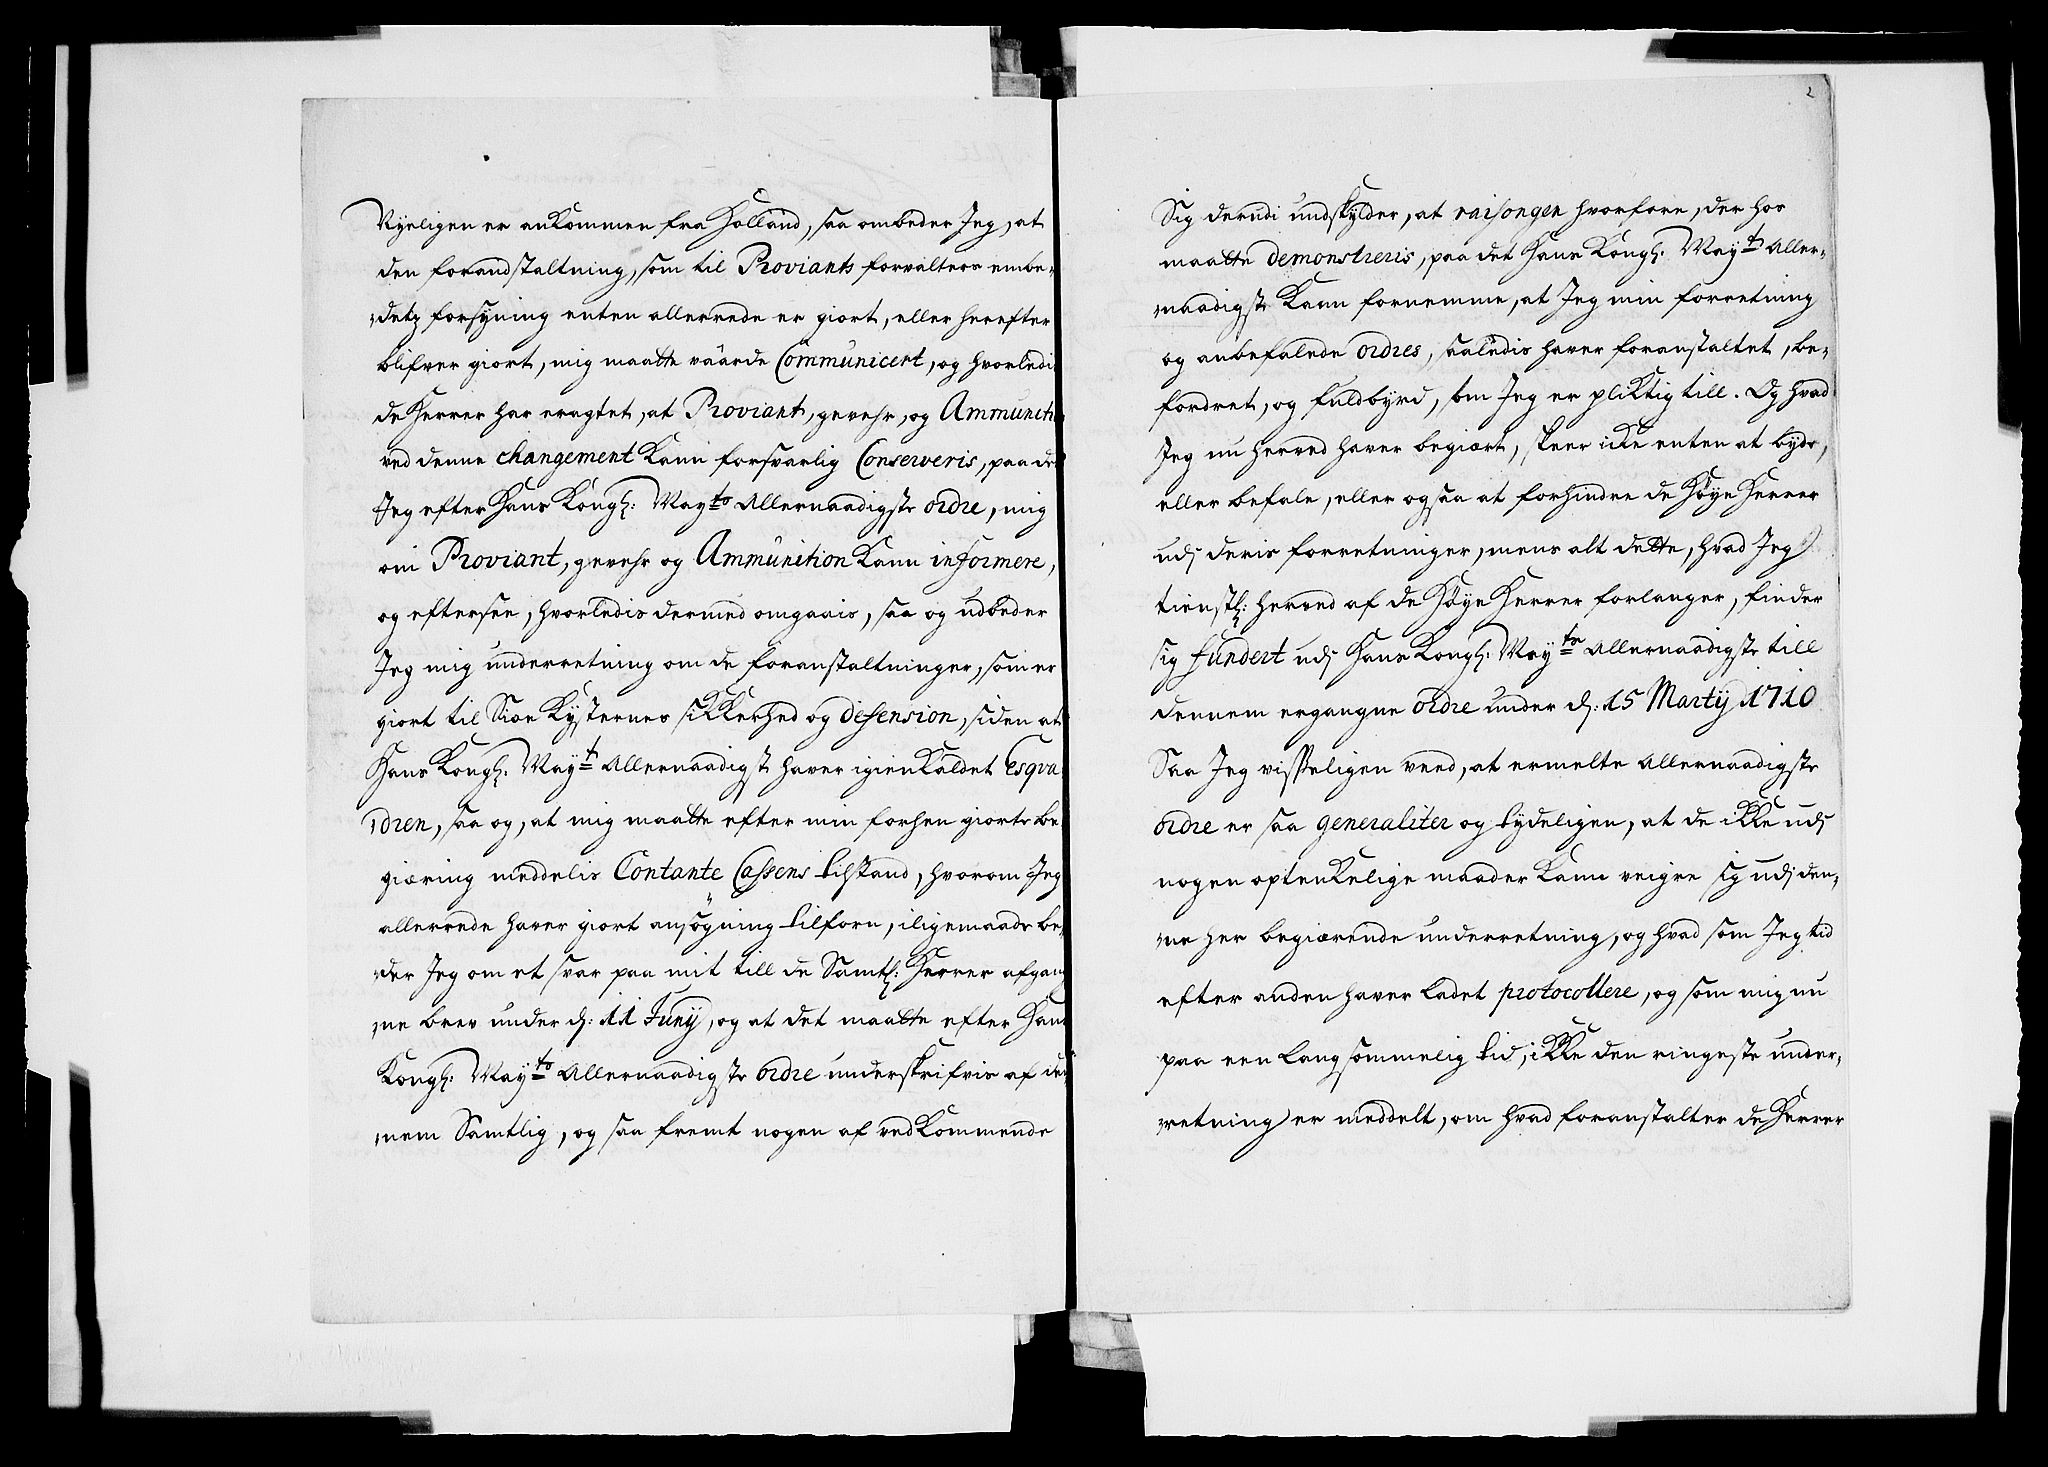 Nyeligen er ankommen fra Holland, saa ombeder Jeg, at
den forandstaltning, som til Proviants forvalters embe-
detz forsyning enten allerrede er giort, eller herefter
blifver giort, mig maatte väärde Communicert, og hvorledi
de Herrer har eragtet, at Proviant, gevehr, og Ammuniti
ved denne changement kann forsvarlig Conserveris, paa de
Jeg efter Hans Kongl: Mayts Allernaadigste ordre, mig
om Proviant, gevehr og Ammunition kann informere,
og eftersee, hvorledis dermed omgaais, saa og udbeder
Jeg mig underretning om de foranstaltninger, som er
giort til Siøe Kysternes sikkerhed og defension, siden at
Hans Kongl: Mayt Allernaadigst haver igienkaldet Esqva
dren, saa og, at mig maatte efter min forhen giorte be
giæring meddelis Contante Cassens tilstand, hvorom Jeg
allerrede haver giort ansögning tilforn, iligemaade be-
der Jeg om et svar paa mit till de Samtl: Herrer afgan
ne brev under d: 11 Juny, og at det maatte efter Hans
Kongl: Mayts Allernaadigste ordre underskrifvis af den
nem Samtlig, og saa fremt nogen af vedkommende
2
Sig derudi undskylder, at raisongen hvorfore, der hos
maatte demonstreris, paa det Hans Kongl: Mayt Aller-
naadigst kann fornemme, at Jeg min forretning
og anbefalede ordres, saaledis haver foranstaltet, be-
fordret, og fuldbyrd, som Jeg er pliktig till. Og hvad
Jeg nu herved haver begiært, skeer icke enten at byde,
eller befale, eller ogsaa at forhindre de Høye Herrer
udj deris forretninger, mens alt dette, hvad Jeg
tienstl: herved af de Høye Herrer forlanger, finder
sig fundert udj Hans Kongl: Mayts Allernaadigste till
dennem ergangne ordre under d: 15 Martij 1710
Saa Jeg visseligen veed, at ermelte Allernaadigste
ordre er saa generaliter og tydeligen, at de ikke udj
nogen optenkelige maader kann veigre sig udj den-
ne her begiærende underretning, og hvad som Jeg tid
efter anden haver ladet protocollere, og som mig nu
paa een langsommelig tid, ikke den ringeste under-
retning er meddelt, om hvad foranstalter de Herrer